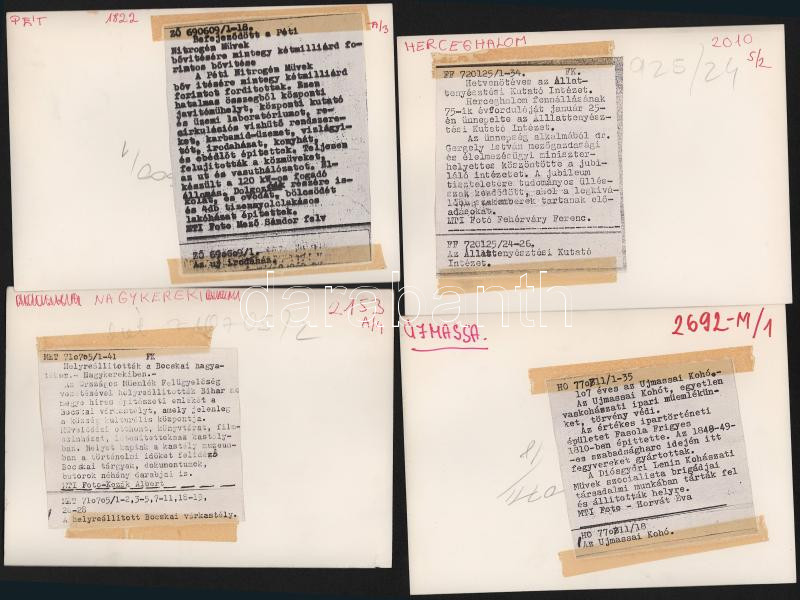 PÉT 1822 A/3
ZŐ 690609/1-18.
Befejeződött a Péti
Nitrogén Művek
bővítésére mintegy kétmilliárd fo-
rintos bővítése
A Péti Nitrogén Művek
bővítésére mintegy kétmilliárd
forintot fordítottak. Ezen
hatalmas összegből központi
javítóműhelyt, központi kutató
és üzemi laboratóriumot, re-
cirkulációs vízhűtő rendszere-
ket, karbamid-üzemet, vízlágyí-
tót, irodaházat, konyhát,
és ebédlőt építettek. Teljesen
felujították a közműveket,
az ut és vasuthálózatot. El-
készült a 120 kW-os fogadó
állomás. Dolgozók részére is-
kolát, és óvodát, bölcsődét
és 4db tizennyolclakásos
lakóházat építettek.
MTI Foto Mező Sándor felv
ZŐ 690609/1.
Az uj irodaház.
HERCEGHALOM 2010 S/2
925/24
FF 720125/1-34. FK.
Hetvenötéves az Állat-
tenyésztési Kutató Intézet.
Herceghalom fennállásának
75-ik évfordulóját január 25-
én ünnepelte az Álllattenyész-
tési Kutató Intézet.
Az ünnepség alkalmából dr.
Gergely István mezőgazdasági
és élelmezésügyi miniszter-
helyettes köszöntötte a jubi-
láló intézetet. A jubileum
tiszteletére tudományos ülés-
szak kezdődött, ahol a legkivá-
lóbb szakemberek tartanak elő-
adásokat.
MTI Fotó Fehérváry Ferenc.
FF 720125/24-26.
Az Állattenyésztési Kutató
Intézet.
NAGYKEREKI 2153 A/1
MET 710705/1-41 FK
Helyreállították a Bocskai hagya-
- Nagykerekiben.-
Az Országos Műemlék Felügyelőség
vezetésével helyreállították Bihar me
megye híres építészeti emlékét a
Bocskai várkastélyt, amely jelenleg
a község kulturális központja.
Művelődési otthont, könyvtárat, film-
színházat, létesítettek a kastély-
ban. Helyet kaptak a kastély muzeum-
ban a történelmi időket felidéző
Bocskai tárgyak, dokumentumok,
butorok néhány darabjai is.
MTI Foto-Kozák Albert
MET 710705/1-2,3-5,7-11,16-19,
24-28
A helyreállított Bocskai várkastély.
ÚJMASSA. 2692-M/1
HO 770811/1-35
107 éves az Ujmassai Kohó.
Az Ujmassai Kohót, egyetlen
vaskohászati ipari műemlékün-
ket, törvény védi.
Az értékes ipartörténeti
épületet Fasola Frigyes
1810-ben építtette. Az 1848-49-
-es szabadságharc idején itt
fegyvereket gyártottak.
A Diósgyőri Lenin Kohászati
Művek szocialista brigádjai
társadalmi munkában tárták fel
és állították helyre.
MTI Foto - Horvát Éva
HO 770811/18
Az Ujmassai Kohó.
darabanth